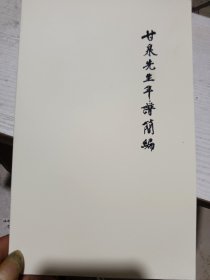 甘泉先生年譜簡編